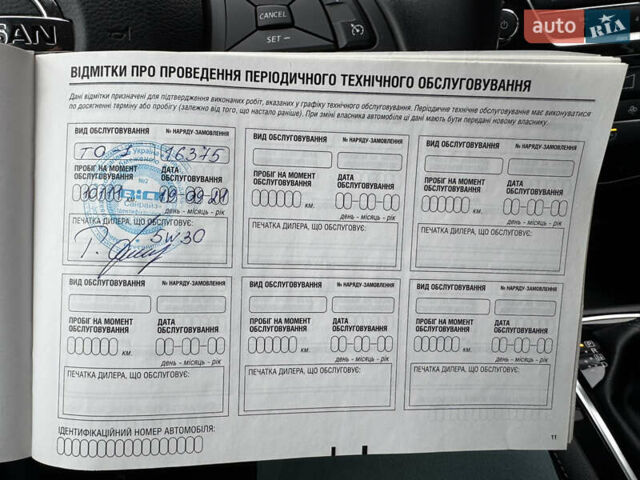 SAN
CANCEL
SET
auto RIA
ВІДМІТКИ ПРО ПРОВЕДЕННЯ ПЕРІОДИЧНОГО ТЕХНІЧНОГО ОБСЛУГОВУВАННЯ
Дані відмітки призначені для підтвердження виконаних робіт, вказаних у графіку технічного обслуговування. Періодичне технічне обслуговування має виконуватися
по досягненні терміну або пробігу (залежно від того, що настало раніше). При зміні власника автомобіля ці дані мають бути передані новому власнику.
ВИД ОБСЛУГОВУВАННЯ № НАРЯДУ-ЗАМОВЛЕННЯ
ТО-1 16375
ПРОБІГ НА МОМЕНТ ОБСЛУГОВУВАННЯ
ДАТА ОБСЛУГОВУВАННЯ
день - місяць - рік
ПЕЧАТКА ДИЛЕРА, ЩО ОБСЛУГОВУЄ:
5W30
ВИД ОБСЛУГОВУВАННЯ № НАРЯДУ-ЗАМОВЛЕННЯ
ПРОБІГ НА МОМЕНТ ОБСЛУГОВУВАННЯ
ДАТА ОБСЛУГОВУВАННЯ
км. день - місяць - рік
ПЕЧАТКА ДИЛЕРА, ЩО ОБСЛУГОВУЄ:
ВИД ОБСЛУГОВУВАННЯ № НАРЯДУ-ЗАМОВЛЕННЯ
ПРОБІГ НА МОМЕНТ ОБСЛУГОВУВАННЯ
ДАТА ОБСЛУГОВУВАННЯ
км. день - місяць - рік
ПЕЧАТКА ДИЛЕРА, ЩО ОБСЛУГОВУЄ:
ВИД ОБСЛУГОВУВАННЯ № НАРЯДУ-ЗАМОВЛЕННЯ
ПРОБІГ НА МОМЕНТ ОБСЛУГОВУВАННЯ
ДАТА ОБСЛУГОВУВАННЯ
км. день - місяць - рік
ПЕЧАТКА ДИЛЕРА, ЩО ОБСЛУГОВУЄ:
ВИД ОБСЛУГОВУВАННЯ № НАРЯДУ-ЗАМОВЛЕННЯ
ПРОБІГ НА МОМЕНТ ОБСЛУГОВУВАННЯ
ДАТА ОБСЛУГОВУВАННЯ
км. день - місяць - рік
ПЕЧАТКА ДИЛЕРА, ЩО ОБСЛУГОВУЄ:
ВИД ОБСЛУГОВУВАННЯ № НАРЯДУ-ЗАМОВЛЕННЯ
ПРОБІГ НА МОМЕНТ ОБСЛУГОВУВАННЯ
ДАТА ОБСЛУГОВУВАННЯ
км. день - місяць - рік
ПЕЧАТКА ДИЛЕРА, ЩО ОБСЛУГОВУЄ:
ІДЕНТИФІКАЦІЙНИЙ НОМЕР АВТОМОБІЛЯ:
11